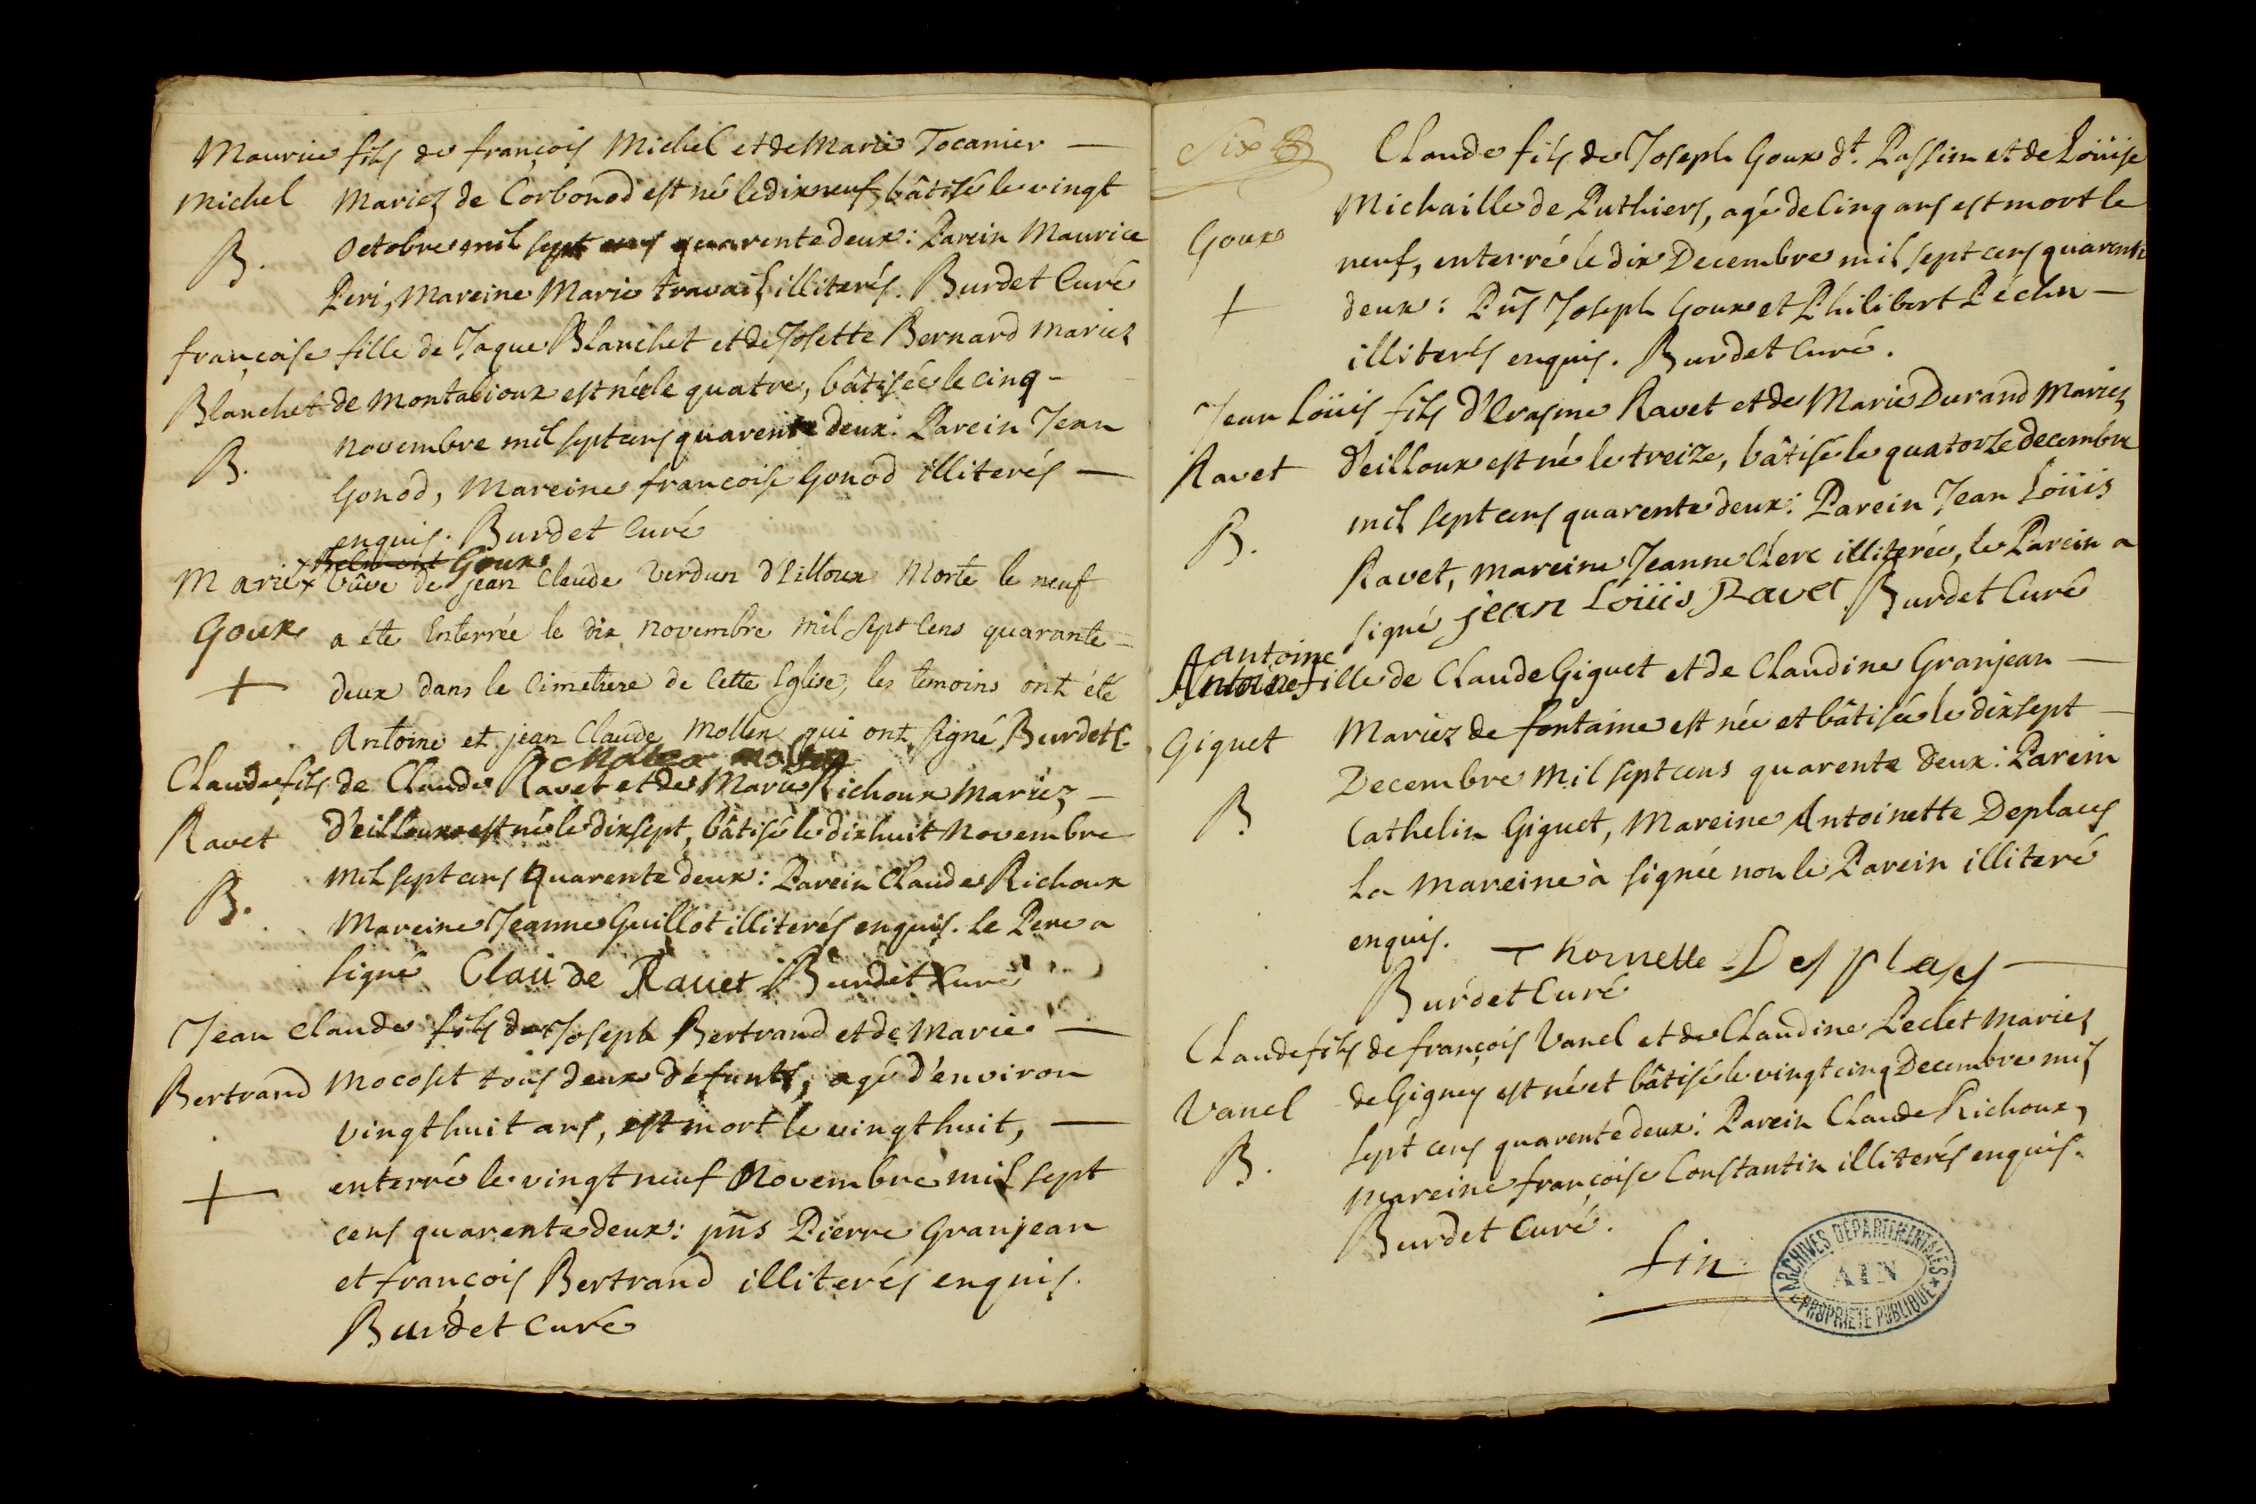 Maurice fils de françois Michel et de Marie Tocanier —
Michel Mariez de Corbonod est né le dix neuf, bâtisé le vingt
B. Octobre mil sept cens quarente deux : Parein Maurice
Peri, Mareine Marie travail, illiterés. Burdet Curé
françoise fille de Jaque Blanchet et de Josette Bernard Mariez
Blanchet de Montabioux est née le quatre, bâtisée le cinq –
B. Novembre mil sept cens quarente deux : Parein Jean
Gonod, Mareine françoise Gonod illiterés —
enquis. Burdet Curé
Goux
Marie x vûve de jean Claude Verdun d'Eilloux Morte le neuf
Goux a été Enterrée le dix novembre Mil Sept Cens quarante –
+ deux dans le Cimetiere de Cette Eglise, les temoins ont été
Antoine et jean Claude Mollen qui ont Signé Burdet C.
mollen
Claude fils de Claude Ravet et de Marie Richoux Mariez –
Ravet d'eilloux est né le dix sept, bâtisé le dix huit Novembre
B. Mil sept cens quarente deux : Parein Claude Richoux
Mareine Jeanne Guillot illiterés enquis. Le Pere a
signé Claude Ravet Burdet Curé
Jean Claude fils de Joseph Bertrand et de Marie —
Bertrand Mocoset tous deux défunts, agé d'environ
vingt huit ans, est mort le vingt huit, —
+ enterré le vingt neuf Novembre mil sept
cens quarente deux : pñs Pierre Granjean
et françois Bertrand illiterés enquis.
Burdet Curé
Six
Claude fils de Joseph Goux dt. Passin et de Loüise
Michaille de Puthiers, agé de Cinq ans est mort le
Goux neuf, enterré le dix Decembre mil sept cens quarente
+ deux : Pñs Joseph Goux et Philibert Péclu —
illiterés enquis. Burdet Curé.
Jean Loüis fils d'Erasme Ravet et de Marie Durand Mariez
Ravet d'eilloux est né le treize, bâtisé le quatorse decembre
B. mil sept cens quarente deux : Parein Jean Loüis
Ravet, mareine Jeanne Clerc illiterée, le Parein a
signé jean Loüis Ravet Burdet Curé
Antoine
Antoine fille de Claude Giguet et de Claudine Granjean —
Giguet Mariez de fontaine est née et bâtisée le dix sept —
B Decembre Mil sept cens quarente deux : Parein
Cathelin Giguet, Mareine Antoinette Deplaces
La Mareine à signée non le Parein illiteré
enquis. Thoinette Desplases —
Burdet Curé
Claude fils de françois Vanel et de Claudine Peclet Mariez
Vanel de Gignez est né et bâtisé le vingt cinq Decembre mil
B. sept cens quarente deux : Parein Claude Richoux,
Mareine françoise Constantin illiterés enquis.
Burdet Curé.
fin
ARCHIVES DÉPARTEMENTALES
AIN
PROPRIÉTÉ PUBLIQUE